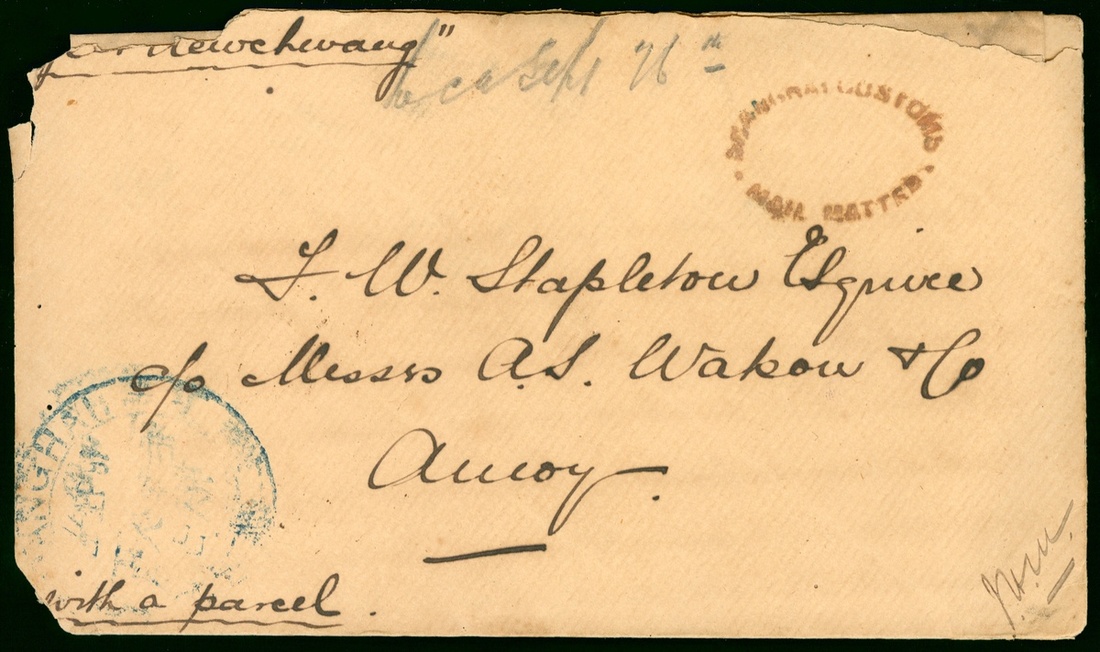 per Newchwang"
Sept 76
SHANGHAI CUSTOMS
MAIL MATTER
F. W. Stapleton Esquire
c/o Messrs A.S. Watson & Co
Amoy.
with a parcel.